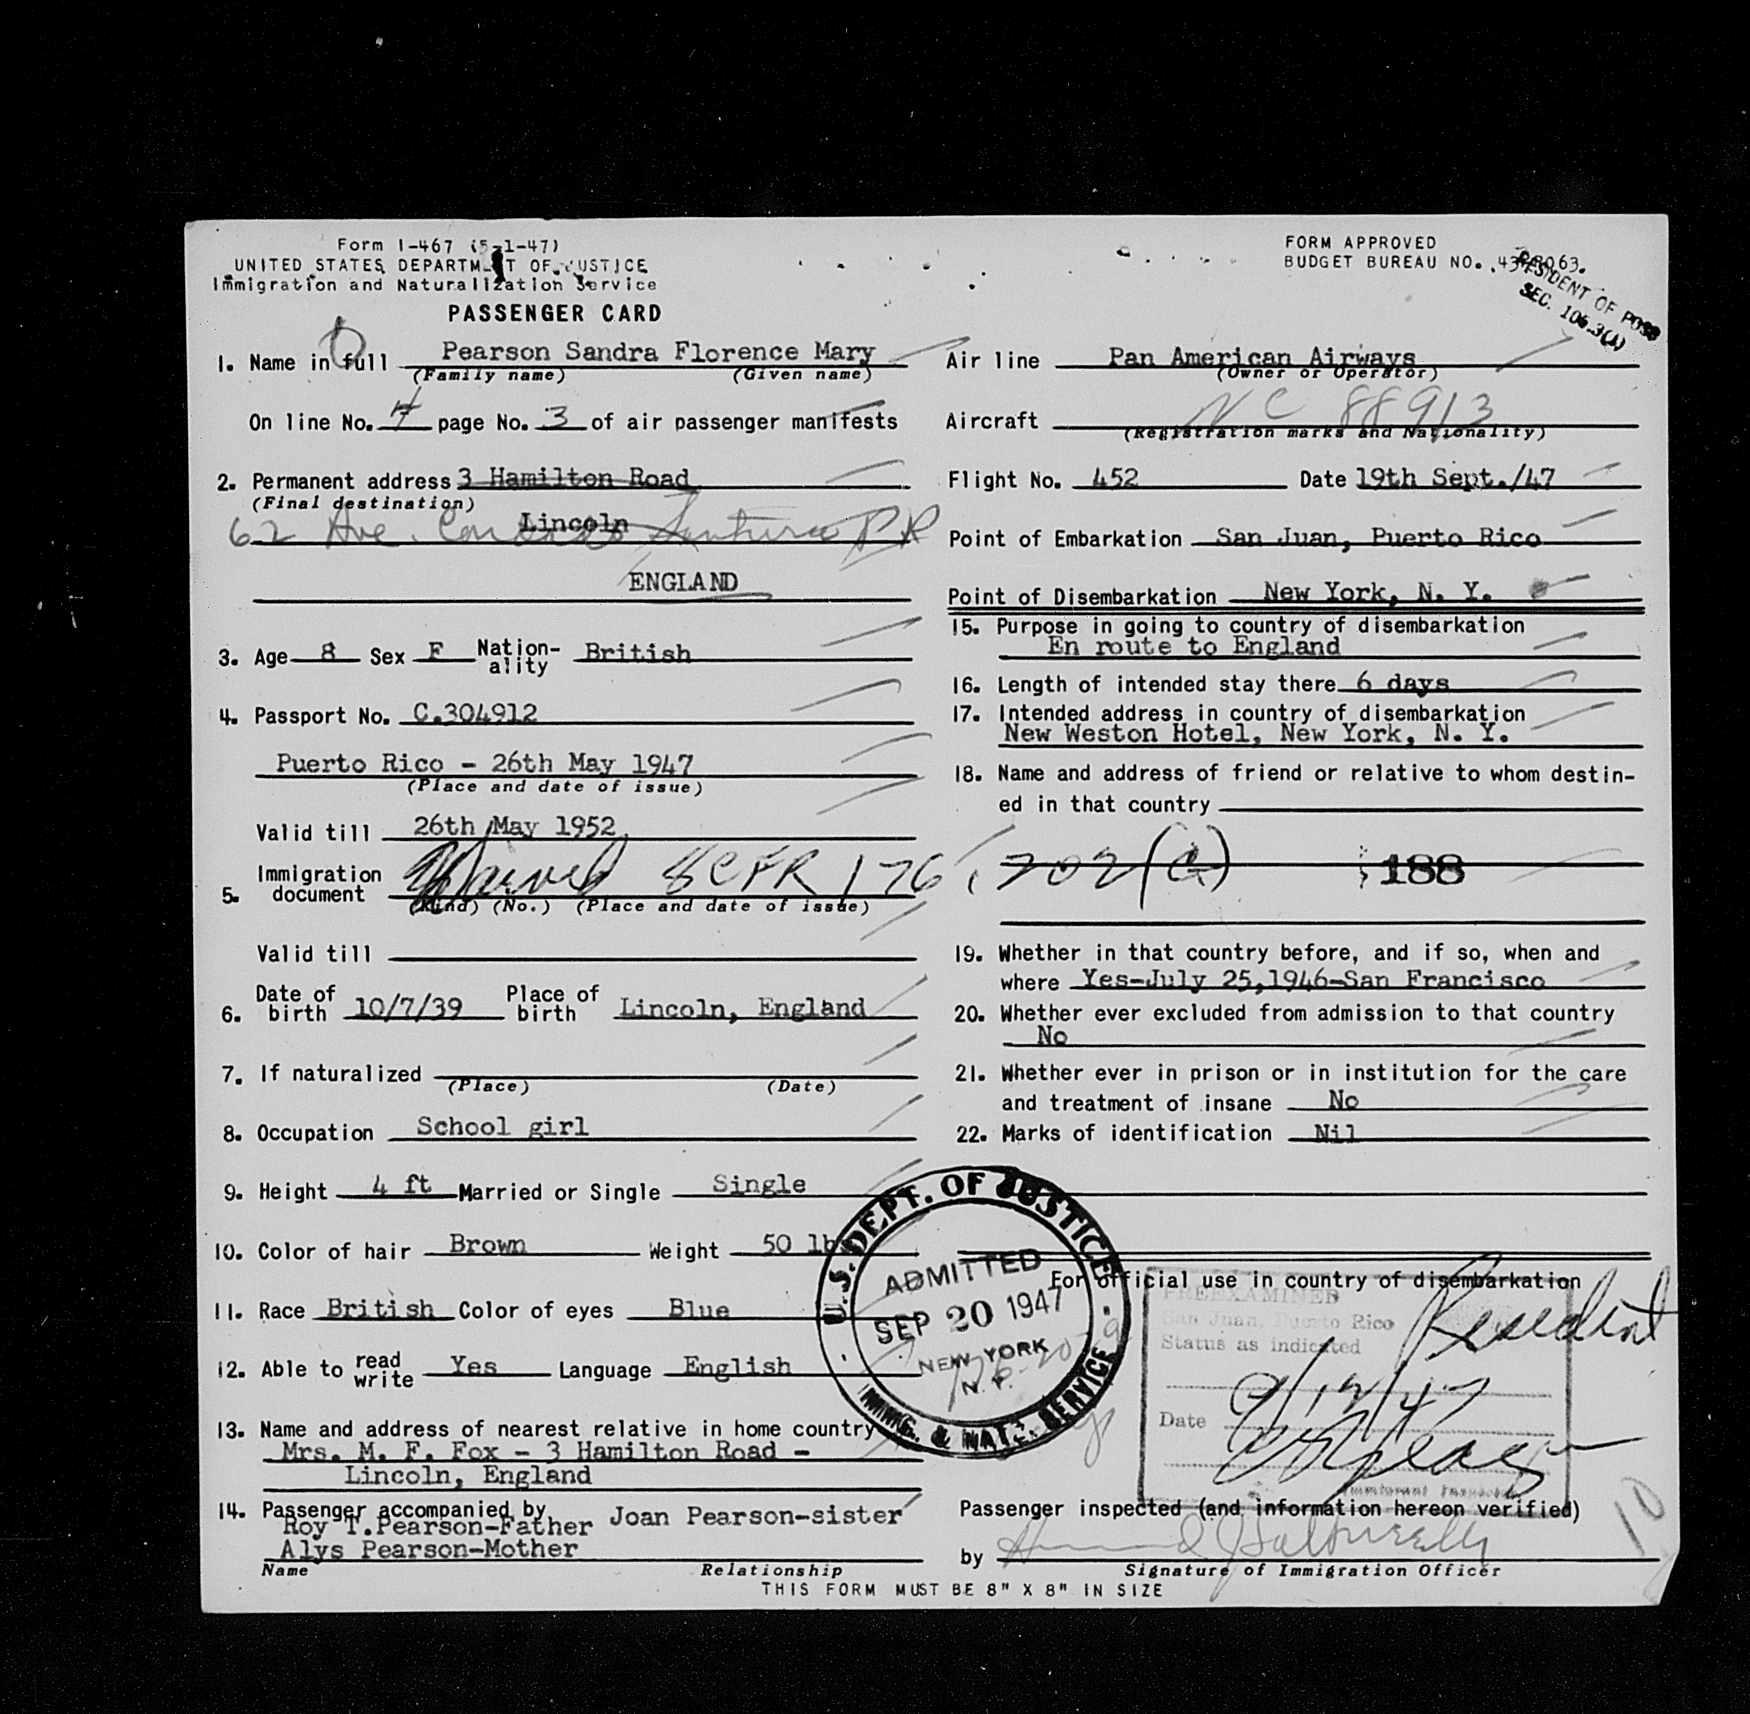 Form I-467 (5-1-47)
UNITED STATES DEPARTMENT OF JUSTICE
Immigration and Naturalization Service
PASSENGER CARD
FORM APPROVED
BUDGET BUREAU NO.
RESIDENT OF POSS
SEC. 106.3(A)
1. Name in full Pearson Sandra Florence Mary
(Family name) (Given name)
On line No. 4 page No. 3 of air passenger manifests
2. Permanent address 3 Hamilton Road
(Final destination)
Lincoln
62 Ave. Condado Santurce P R
ENGLAND
3. Age 8 Sex F Nation-ality British
4. Passport No. C.304912
Puerto Rico - 26th May 1947
(Place and date of issue)
Valid till 26th May 1952
5. Immigration document Waived 8 CFR 176.202(a)
(Kind) (No.) (Place and date of issue)
Valid till
6. Date of birth 10/7/39 Place of birth Lincoln, England
7. If naturalized
(Place) (Date)
8. Occupation School girl
9. Height 4 ft Married or Single Single
10. Color of hair Brown Weight 50 lb
11. Race British Color of eyes Blue
12. Able to read write Yes Language English
13. Name and address of nearest relative in home country
Mrs. M. F. Fox - 3 Hamilton Road -
Lincoln, England
14. Passenger accompanied by
Roy T.Pearson-Father Joan Pearson-sister
Alys Pearson-Mother
Name Relationship
Air line Pan American Airways
(Owner or Operator)
Aircraft NC 88913
(Registration marks and Nationality)
Flight No. 452 Date 19th Sept./47
Point of Embarkation San Juan, Puerto Rico
Point of Disembarkation New York, N. Y.
15. Purpose in going to country of disembarkation
En route to England
16. Length of intended stay there 6 days
17. Intended address in country of disembarkation
New Weston Hotel, New York, N. Y.
18. Name and address of friend or relative to whom destin-
ed in that country
188
19. Whether in that country before, and if so, when and
where Yes-July 25,1946-San Francisco
20. Whether ever excluded from admission to that country
No
21. Whether ever in prison or in institution for the care
and treatment of insane No
22. Marks of identification Nil
U.S. DEPT. OF JUSTICE
ADMITTED
SEP 20 1947
NEW YORK
N. Y.
IMMIG. & NATZ. SERVICE
For official use in country of disembarkation
PREEXAMINED
San Juan, Puerto Rico
Status as indicated
Resident
Date 9/12/47
Immigrant Inspector
Passenger inspected (and information hereon verified)
10
by
Signature of Immigration Officer
THIS FORM MUST BE 8" X 8" IN SIZE